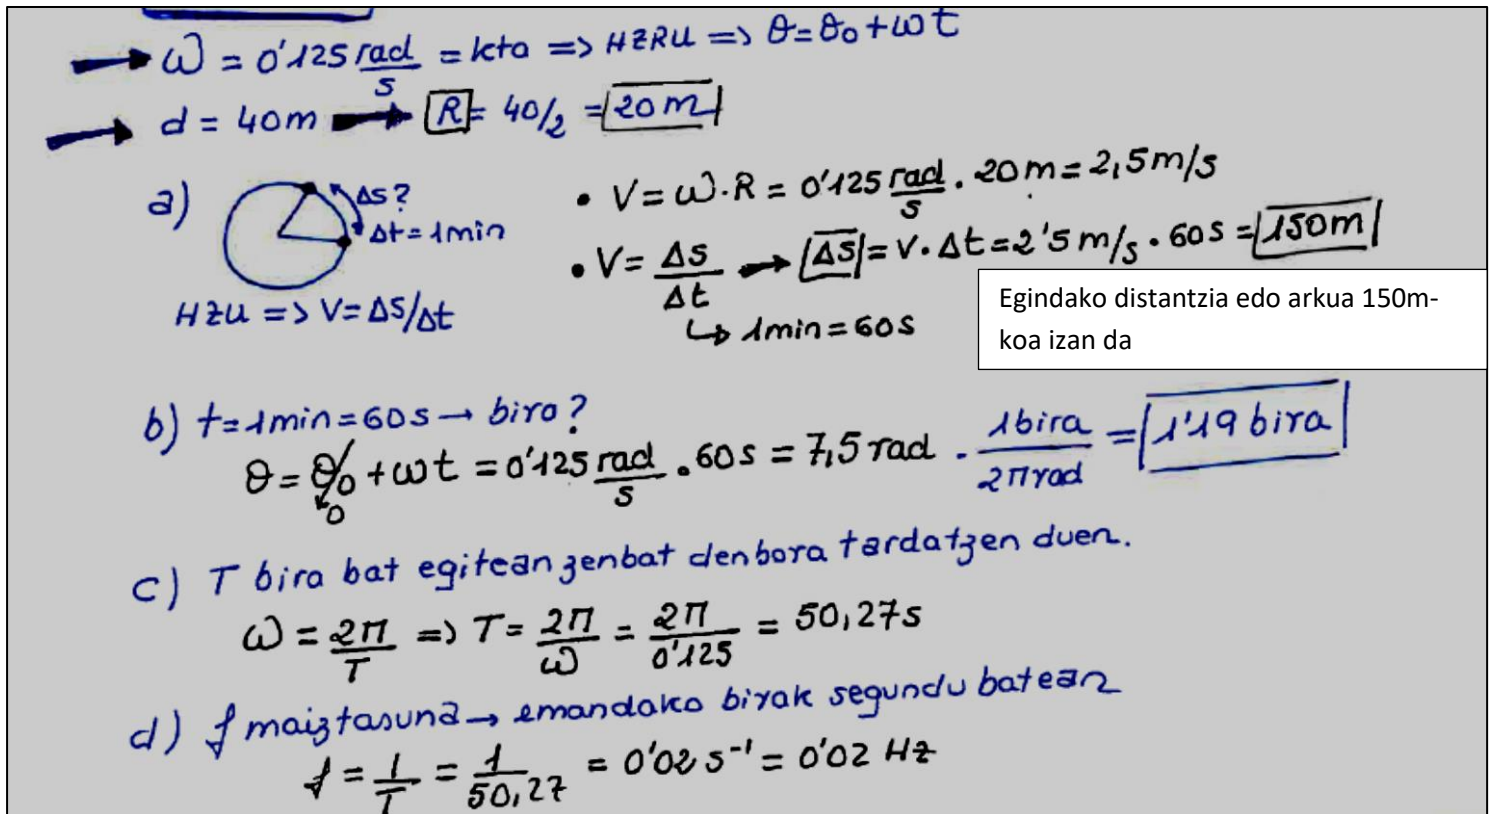 ω = 0'125 rad/s = kta => HZRU => θ = θ₀ + ωt
d = 40m → R = 40/2 = 20 m
a) Δs? • V = ω·R = 0'125 rad/s · 20 m = 2,5 m/s
Δt = 1min • V = Δs/Δt → Δs = V·Δt = 2'5 m/s · 60s = 150m
HZU => V = Δs/Δt ↳ 1min = 60s
Egindako distantzia edo arkua 150m-
koa izan da
b) t = 1min = 60s → bira?
θ = θ₀ + ωt = 0'125 rad/s · 60s = 7,5 rad · 1bira/2π rad = 1'19 bira
0
c) T bira bat egitean zenbat denbora tardatzen duen.
ω = 2π/T => T = 2π/ω = 2π/0'125 = 50,27s
d) f maiztasuna → emandako birak segundu batean
f = 1/T = 1/50,27 = 0'02 s⁻¹ = 0'02 Hz